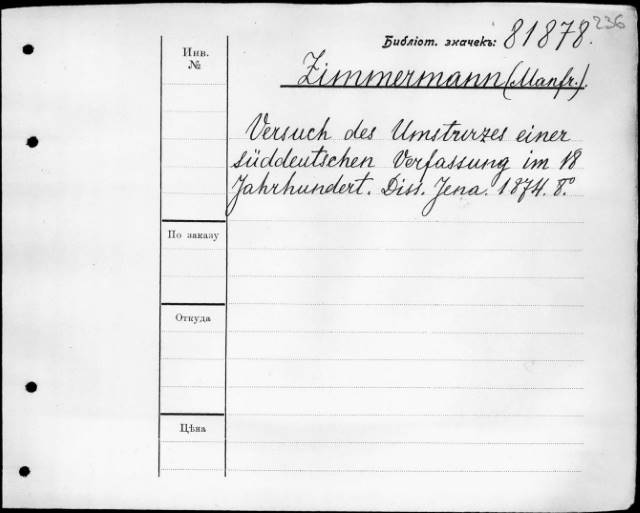 236
Библіот. значекъ: 81878.
Инв.
№
Zimmermann (Manfr.).
Versuch des Umsturzes einer
süddeutschen Verfassung im 18
Jahrhundert. Diss. Jena. 1874. 8°
По заказу
Откуда
Цѣна